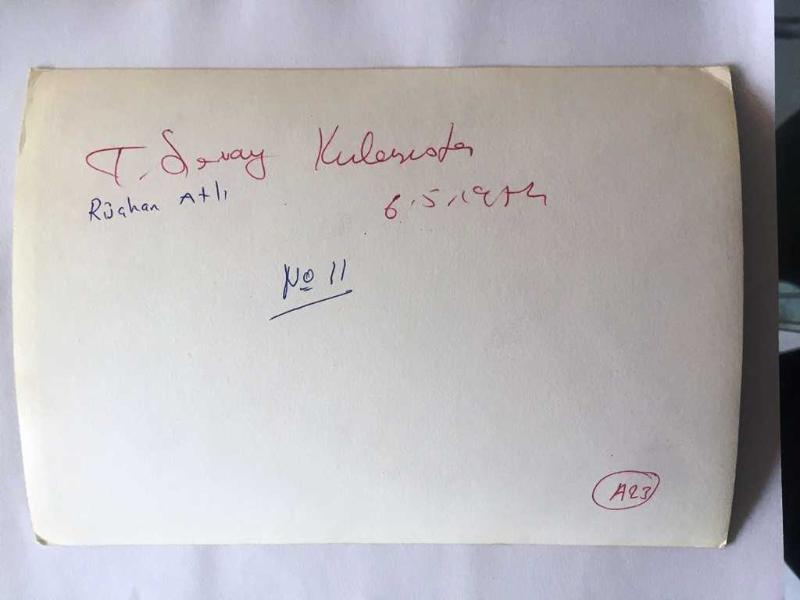 T. Saray Kulesinde
Rüçhan Atlı
6.5.1974
No 11
A23